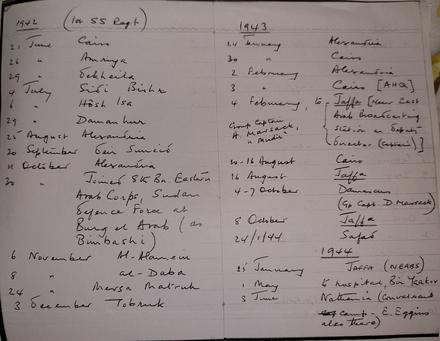 1942 (1st SS Regt)
21 June Cairo
26 " Amriya
29 " Dekheila
4 July Sidi Bishr
6 " Hosh Isa
29 " Damanhur
25 August Alexandria
20 September Geir Suneid
11 October Alexandria
30 " Joined 8th Bn Eastern
Arab Corps, Sudan
Defence Force at
Burg el Arab (as
Bimbashi)
6 November Al-Alamein
8 " al-Daba
24 " Mersa Matruh
3 December Tobruk
1943
24 January Alexandria
30 " Cairo
2 February Alexandria
3 " Cairo [AHQ]
4 February, to Jaffa [Near East
Arab Broadcasting
Station as Deputy
Director (Captain)]
Group Captain
A. Marsack,
"Mudir"
10-16 August Cairo
16 August Jaffa
4-7 October Damascus
(Gp Capt D. Marsack)
8 October Jaffa
24/1/44 Safad
1944
25 January JAFFA (NEABS)
1 May to hospital, Bir Yaakov
3 June Nathania (Convalescent
camp - E. Eggins
also there)